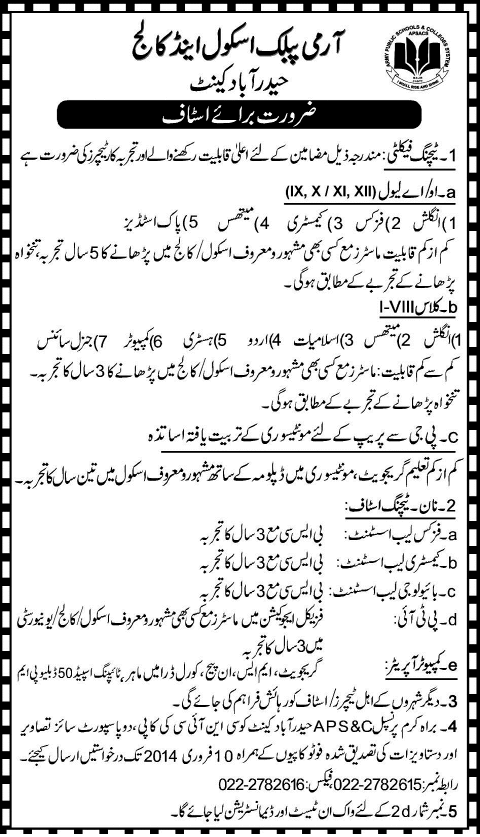 آرمی پبلک اسکول اینڈ کالج
حیدرآباد کینٹ
ARMY PUBLIC SCHOOLS & COLLEGES SYSTEM
APSACS
I SHALL RISE AND SHINE
ضرورت برائے اسٹاف
1۔ ٹیچنگ فیکلٹی: مندرجہ ذیل مضامین کے لئے اعلیٰ قابلیت رکھنے والے اور تجربہ کار ٹیچرز کی ضرورت ہے
a۔ او/اے لیول (IX, X / XI, XII)
1) انگلش 2) فزکس 3) کیمسٹری 4) میتھس 5) پاک اسٹڈیز
کم از کم قابلیت ماسٹرز مع کسی بھی مشہور و معروف اسکول/کالج میں پڑھانے کا 5 سال تجربہ، تنخواہ
پڑھانے کے تجربے کے مطابق ہوگی۔
b۔ کلاس I-VIII
1) انگلش 2) میتھس 3) اسلامیات 4) اردو 5) ہسٹری 6) کمپیوٹر 7) جنرل سائنس
کم سے کم قابلیت: ماسٹرز مع کسی بھی مشہور و معروف اسکول/کالج میں پڑھانے کا 3 سال کا تجربہ۔
تنخواہ پڑھانے کے تجربے کے مطابق ہوگی۔
c۔ پی جی سے پریپ کے لئے مونٹیسوری کے تربیت یافتہ اساتذہ
کم از کم تعلیم گریجویٹ، مونٹیسوری میں ڈپلومہ کے ساتھ مشہور و معروف اسکول میں تین سال کا تجربہ۔
2۔ نان۔ ٹیچنگ اسٹاف:
a۔ فزکس لیب اسسٹنٹ: بی ایس سی مع 3 سال کا تجربہ
b۔ کیمسٹری لیب اسسٹنٹ: بی ایس سی مع 3 سال کا تجربہ
c۔ بائیولوجی لیب اسسٹنٹ: بی ایس سی مع 3 سال کا تجربہ
d۔ پی ٹی آئی: فزیکل ایجوکیشن میں ماسٹرز مع کسی بھی مشہور و معروف اسکول/کالج/یونیورسٹی
میں 3 سال کا تجربہ
e۔ کمپیوٹر آپریٹر: گریجویٹ، ایم ایس، ان پیج، کورل ڈرا میں ماہر، ٹائپنگ اسپیڈ 50 ڈبلیو پی ایم
3۔ دیگر شہروں کے اہل ٹیچرز/اسٹاف کو رہائش فراہم کی جائے گی۔
4۔ براہ کرم پرنسپل APS&C حیدرآباد کینٹ کو سی این آئی سی کی کاپی، دو پاسپورٹ سائز تصاویر
اور دستاویزات کی تصدیق شدہ فوٹو کاپیوں کے ہمراہ 10 فروری 2014 تک درخواستیں ارسال کیجئے۔
رابطہ نمبر: 022-2782615، فیکس: 022-2782616
5۔ نمبر شمار 2d کے لئے واک ان ٹیسٹ اور ڈیمانسٹریشن لیا جائے گا۔